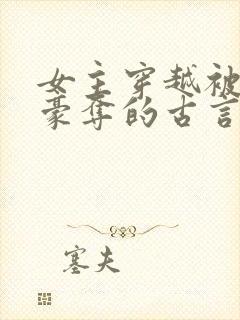 女主穿越被
豪夺的古言
塞夫